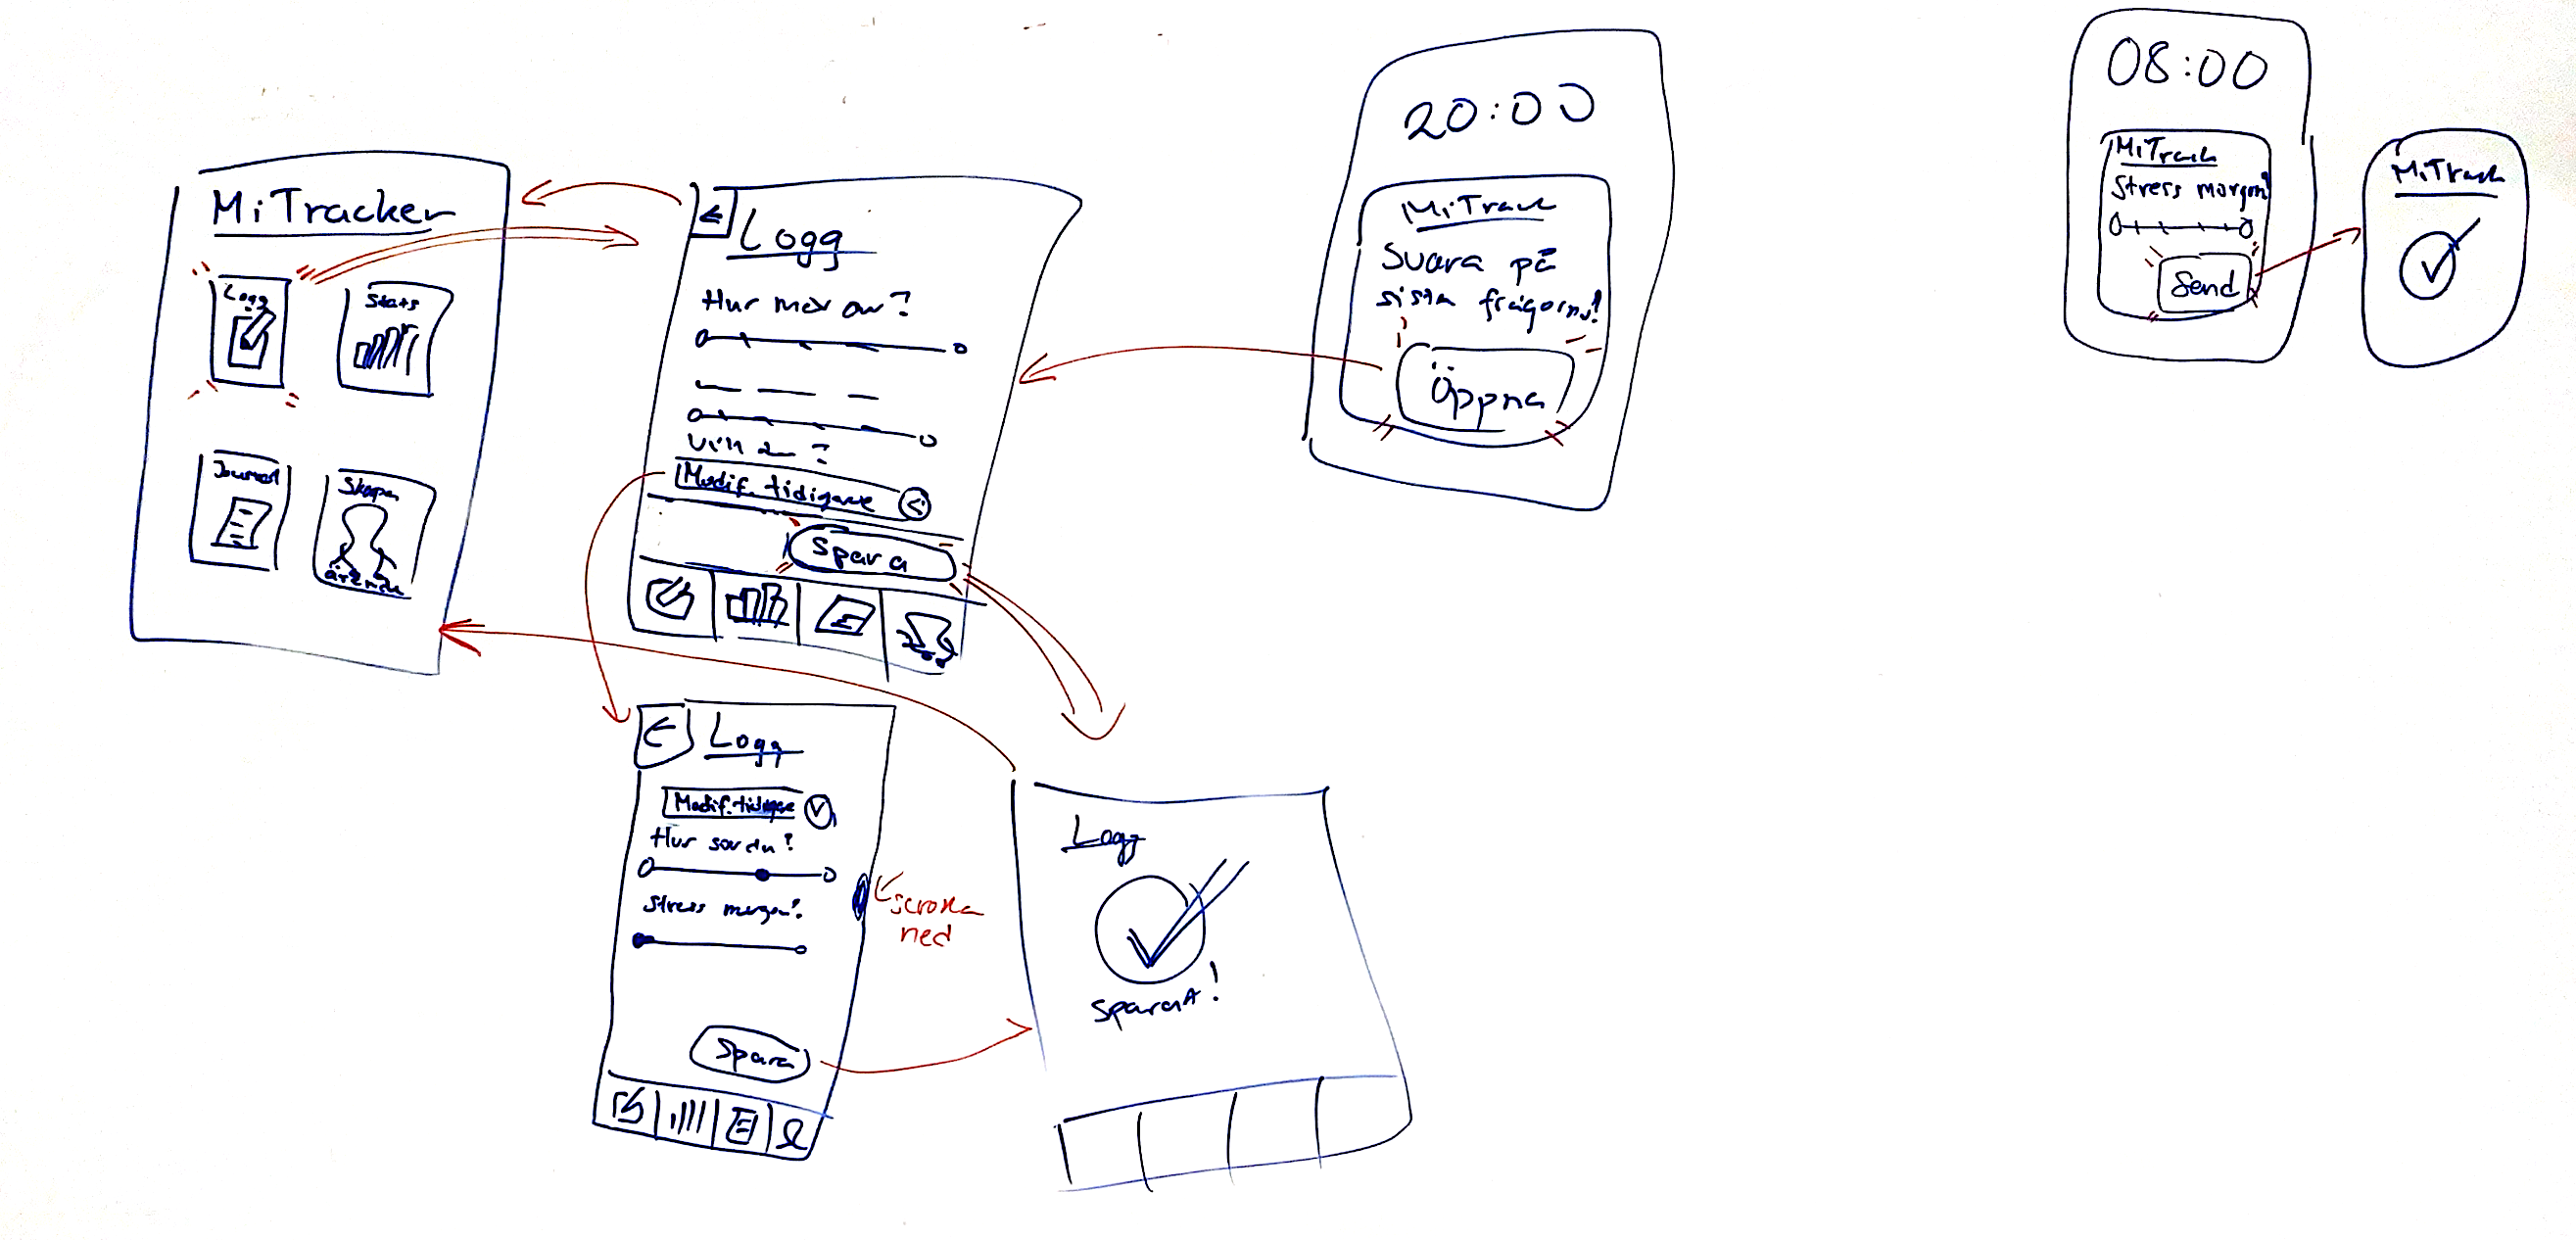 MiTracker
Logg
Stats
Journal
Skapa
ärende
Logg
Hur mår du?
?
Modif. tidigare
Spara
20:00
MiTrack
Svara på
sista frågorna!
Öppna
08:00
MiTrack
Stress morgon?
Send
MiTrack
Logg
Modif. tidigare
Hur sov du?
Stress morgon?
Spara
scrolla
ned
Logg
Sparat!